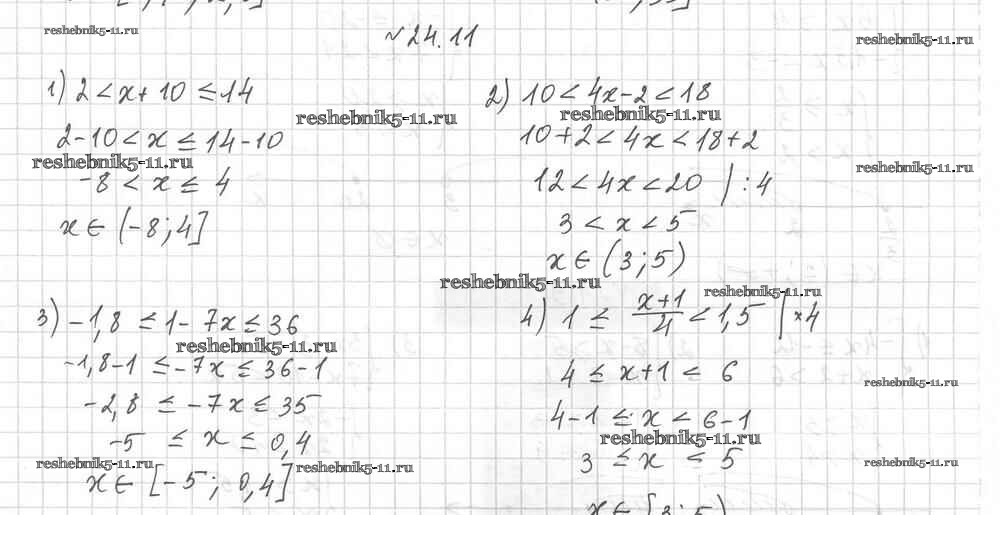 №24.11
1) 2 < x + 10 ≤ 14
2 - 10 < x ≤ 14 - 10
-8 < x ≤ 4
x ∈ (-8; 4]
2) 10 < 4x - 2 < 18
10 + 2 < 4x < 18 + 2
12 < 4x < 20 | : 4
3 < x < 5
x ∈ (3; 5)
3) -1,8 ≤ 1 - 7x ≤ 36
-1,8 - 1 ≤ -7x ≤ 36 - 1
-2,8 ≤ -7x ≤ 35
-5 ≤ x ≤ 0,4
x ∈ [-5; 0,4]
4) 1 ≤ (x+1)/4 < 1,5 | × 4
4 ≤ x + 1 < 6
4 - 1 ≤ x < 6 - 1
3 ≤ x < 5
x ∈ [3; 5)
reshebnik5-11.ru
reshebnik5-11.ru
reshebnik5-11.ru
reshebnik5-11.ru
reshebnik5-11.ru
reshebnik5-11.ru
reshebnik5-11.ru
reshebnik5-11.ru
reshebnik5-11.ru
reshebnik5-11.ru
reshebnik5-11.ru
reshebnik5-11.ru
reshebnik5-11.ru
reshebnik5-11.ru